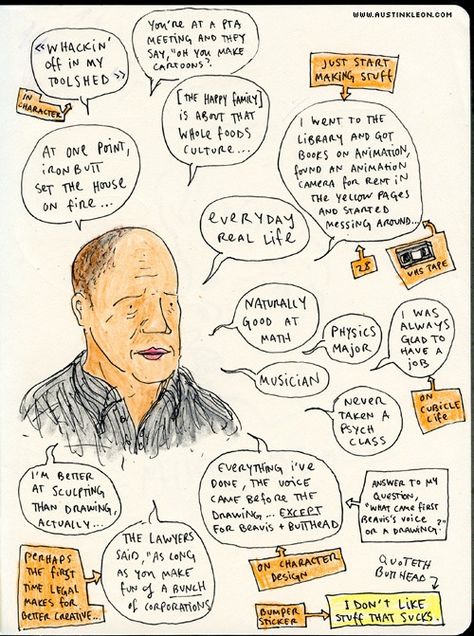 WWW.AUSTINKLEON.COM
«WHACKIN'
OFF IN MY
TOOLSHED»
IN
CHARACTER
YOU'RE AT A PTA
MEETING AND THEY
SAY, "OH YOU MAKE
CARTOONS?
[THE HAPPY FAMILY]
IS ABOUT THAT
WHOLE FOODS
CULTURE...
JUST START
MAKING STUFF
I WENT TO THE
LIBRARY AND GOT
BOOKS ON ANIMATION,
FOUND AN ANIMATION
CAMERA FOR RENT IN
THE YELLOW PAGES
AND STARTED
MESSING AROUND...
28
VHS TAPE
AT ONE POINT,
IRON BUTT
SET THE HOUSE
ON FIRE...
EVERYDAY
REAL LIFE
NATURALLY
GOOD AT
MATH
PHYSICS
MAJOR
I WAS
ALWAYS
GLAD TO
HAVE A
JOB
ON
CUBICLE
LIFE
MUSICIAN
NEVER
TAKEN A
PSYCH
CLASS
I'M BETTER
AT SCULPTING
THAN DRAWING,
ACTUALLY...
EVERYTHING I'VE
DONE, THE VOICE
CAME BEFORE THE
DRAWING... EXCEPT
FOR BEAVIS + BUTTHEAD
ANSWER TO MY
QUESTION,
"WHAT CAME FIRST
BEAVIS'S VOICE
OR A DRAWING?"
ON CHARACTER
DESIGN
THE LAWYERS
SAID, "AS LONG
AS YOU MAKE
FUN OF A BUNCH
OF CORPORATIONS
PERHAPS
THE FIRST
TIME LEGAL
MAKES FOR
BETTER CREATIVE...
QUOTETH
BUTTHEAD
BUMPER
STICKER
I DON'T LIKE
STUFF THAT SUCKS.